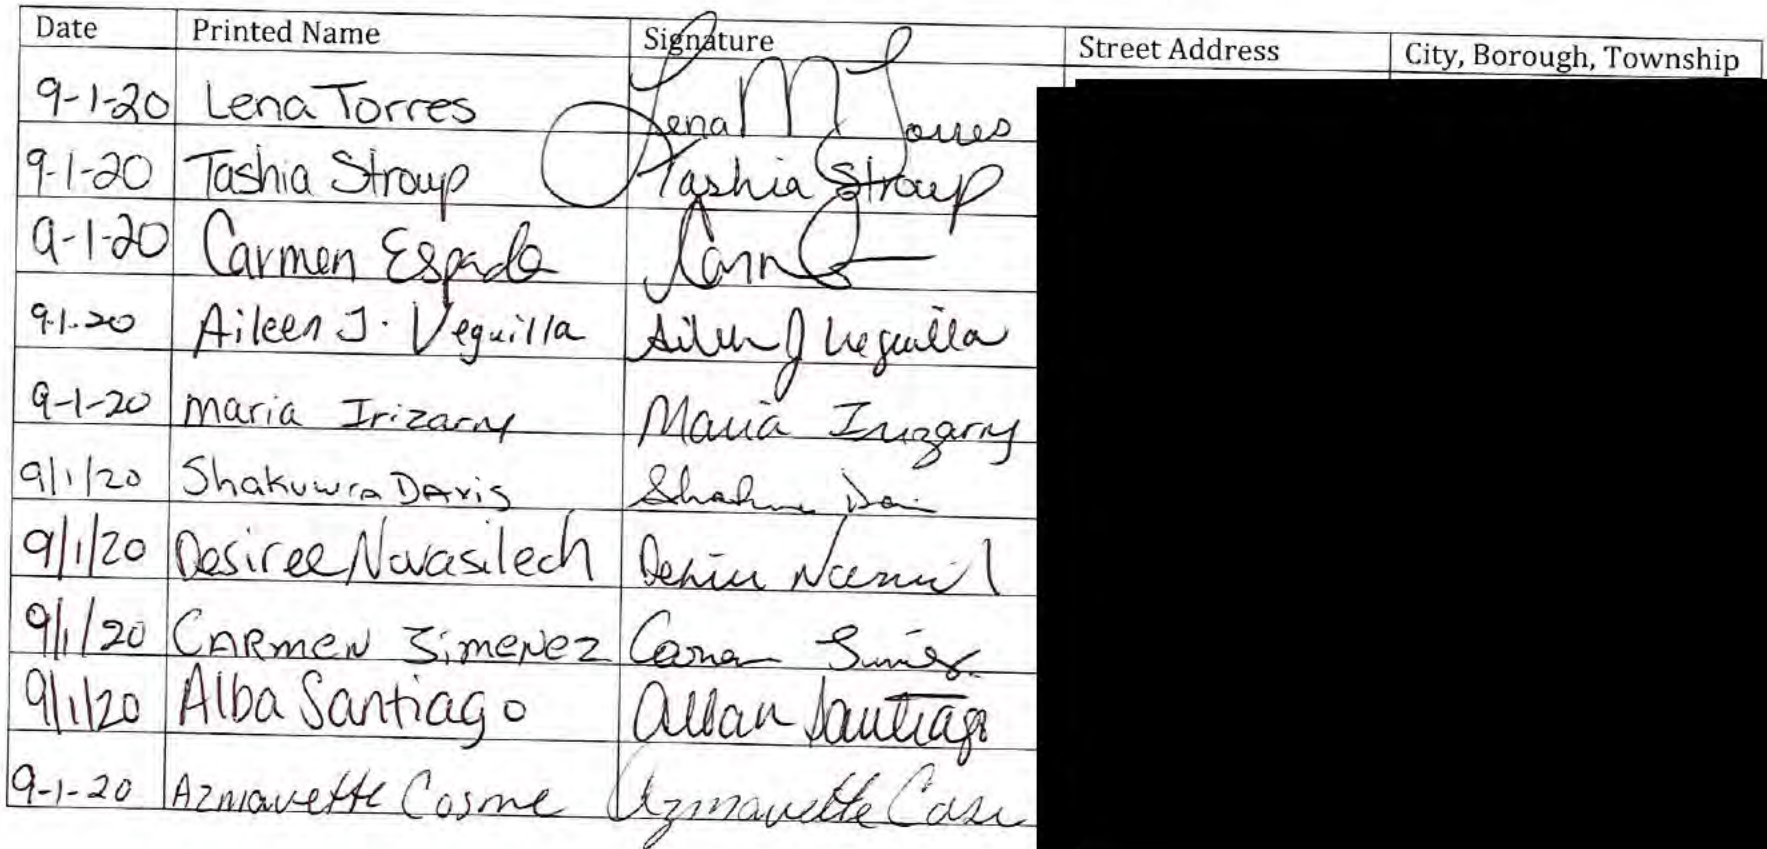 Date Printed Name Signature Street Address City, Borough, Township
9-1-20 Lena Torres Lena M Torres
9-1-20 Tashia Stroup Tashia Stroup
9-1-20 Carmen Espada
9.1.20 Aileen J. Veguilla Aileen J Veguilla
9-1-20 maria Irizarry Maria Irizarry
9/1/20 Shakuwra DAvis
9/1/20 Desiree Novasilech
9/1/20 CARmeN JimeNez
9/1/20 Alba Santiago Santiago
9-1-20 Azmavette Cosme Azmavette